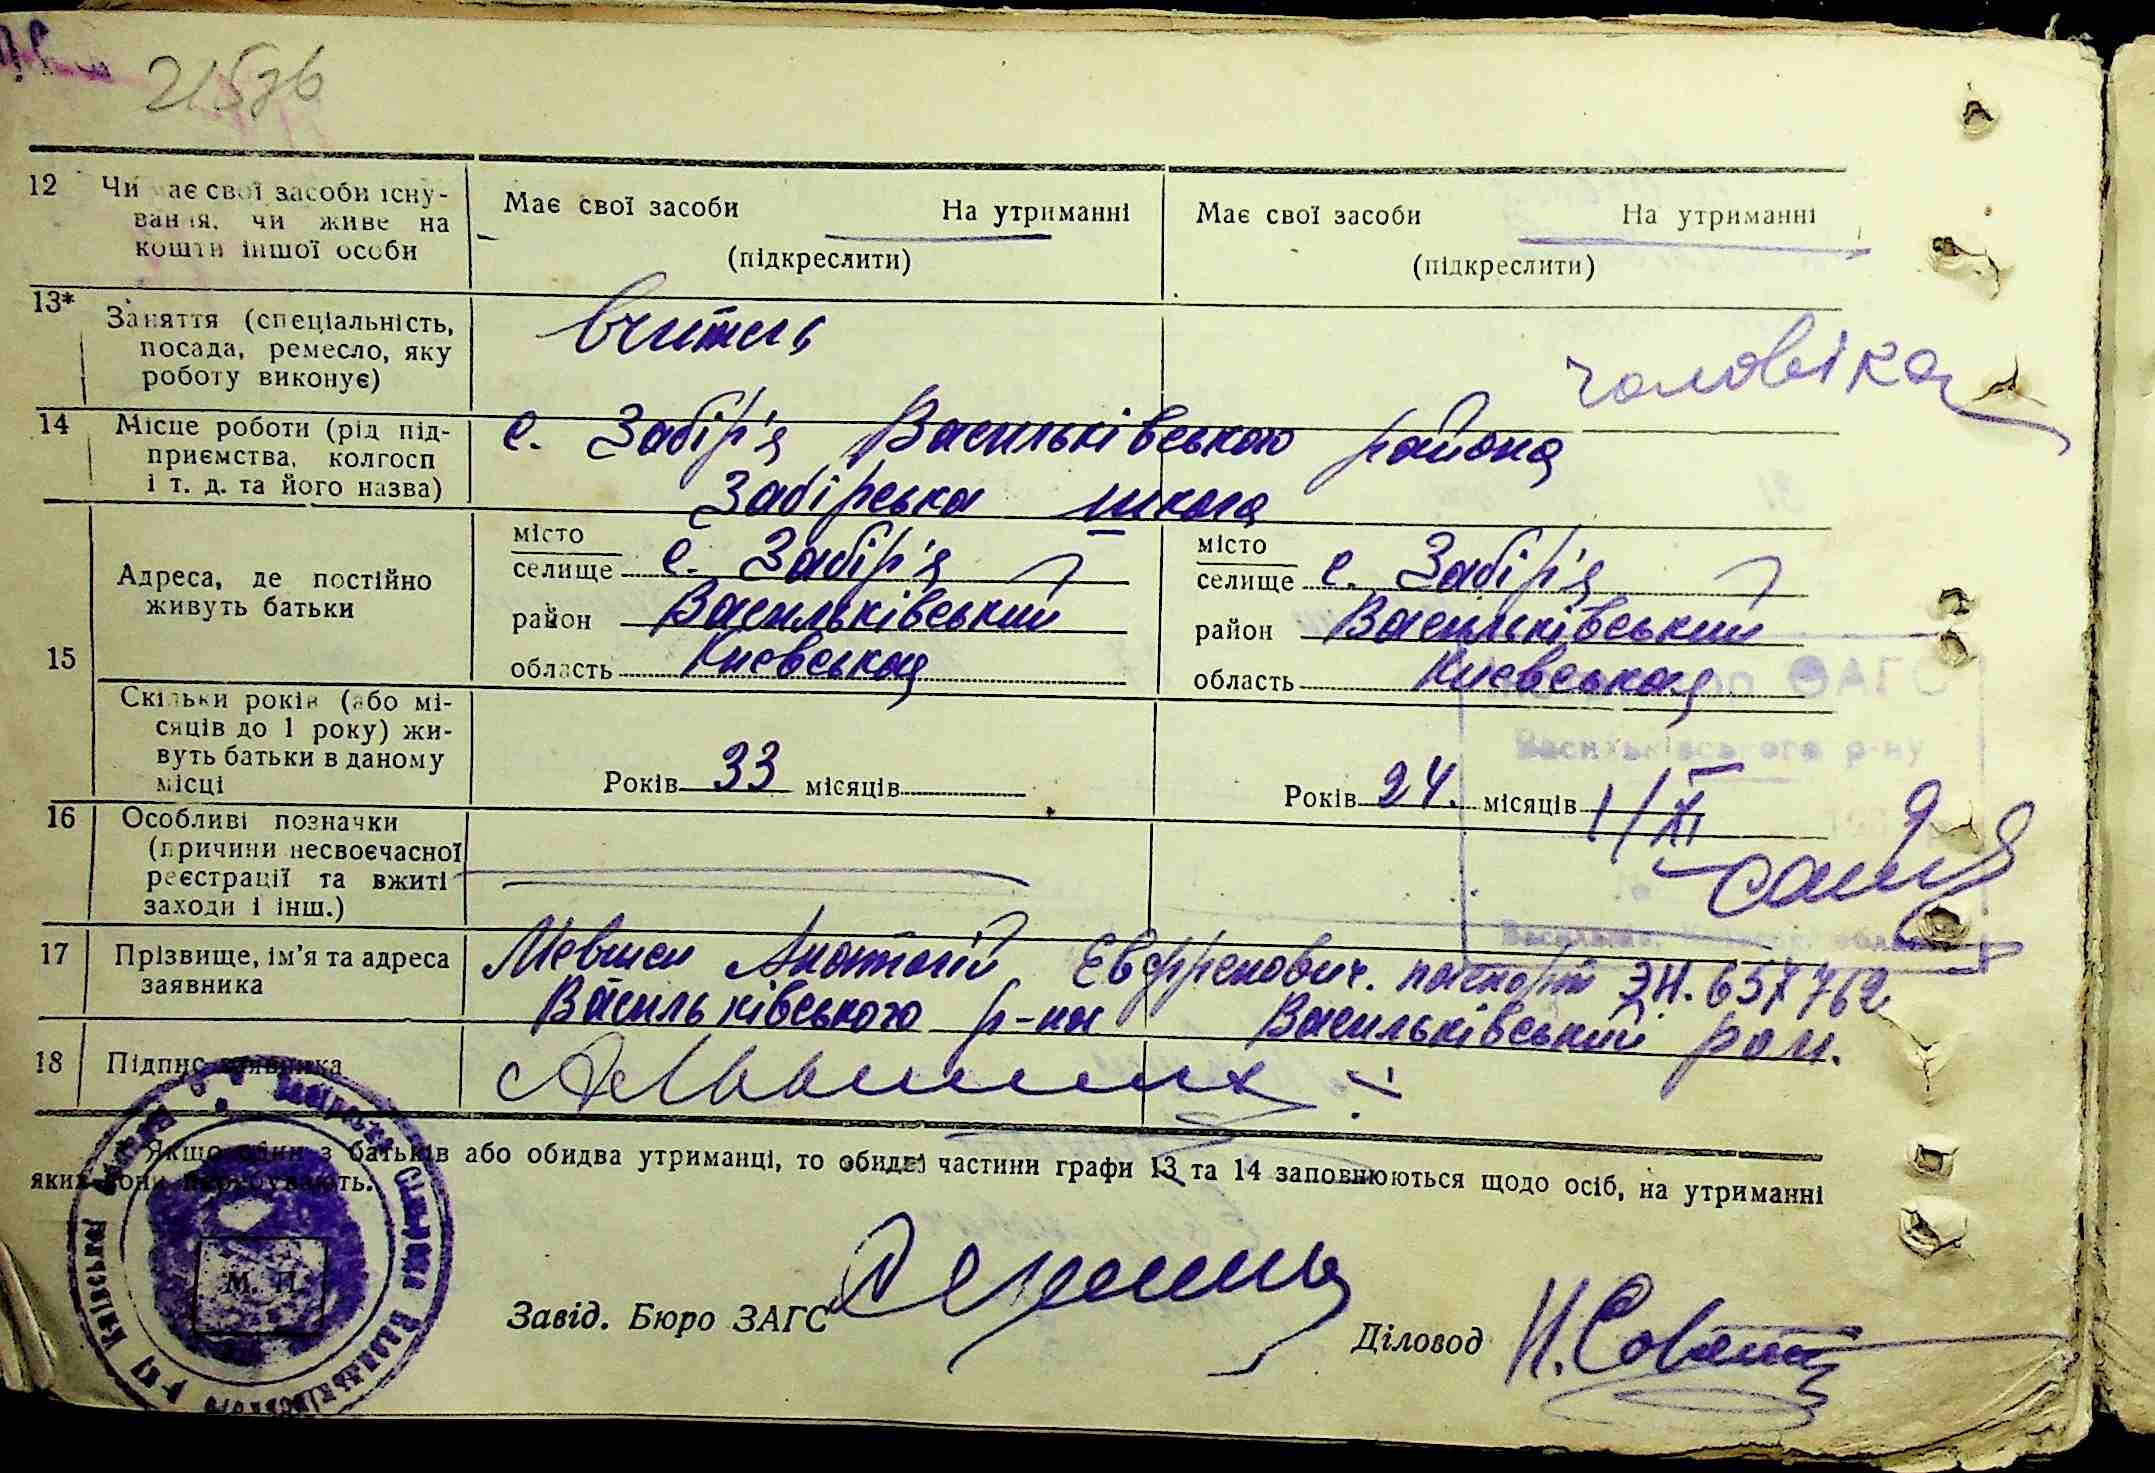 2157б
12 Чи має свої засоби існу-
вання, чи живе на
кошти іншої особи
Має свої засоби На утриманні
(підкреслити)
Має свої засоби На утриманні
(підкреслити)
13* Заняття (спеціальність,
посада, ремесло, яку
роботу виконує)
вчитель
чоловіка
14 Місце роботи (рід під-
приємства, колгосп
і т. д. та його назва)
с. Забір'я Васильківського района
Забірська школа
15 Адреса, де постійно
живуть батьки
місто
селище с. Забір'я
район Васильківський
область Киевськая
місто
селище с. Забір'я
район Васильківський
область Киевськая
Скільки років (або мі-
сяців до 1 року) жи-
вуть батьки в даному
місці
Років 33 місяців
Років 24. місяців
1/XI
ЗАГС
Васильківського р-ну
16 Особливі позначки
(причини несвоєчасної
реєстрації та вжиті
заходи і інш.)
17 Прізвище, ім'я та адреса
заявника
Анатолій паспорт
Васильківського р-на Васильківський
18 Підпис заявника
Якщо один з батьків або обидва утриманці, то обидві частини графи 13 та 14 заповнюються щодо осіб, на утриманні
яких вони перебувають.
М. П.
Завід. Бюро ЗАГС
Діловод